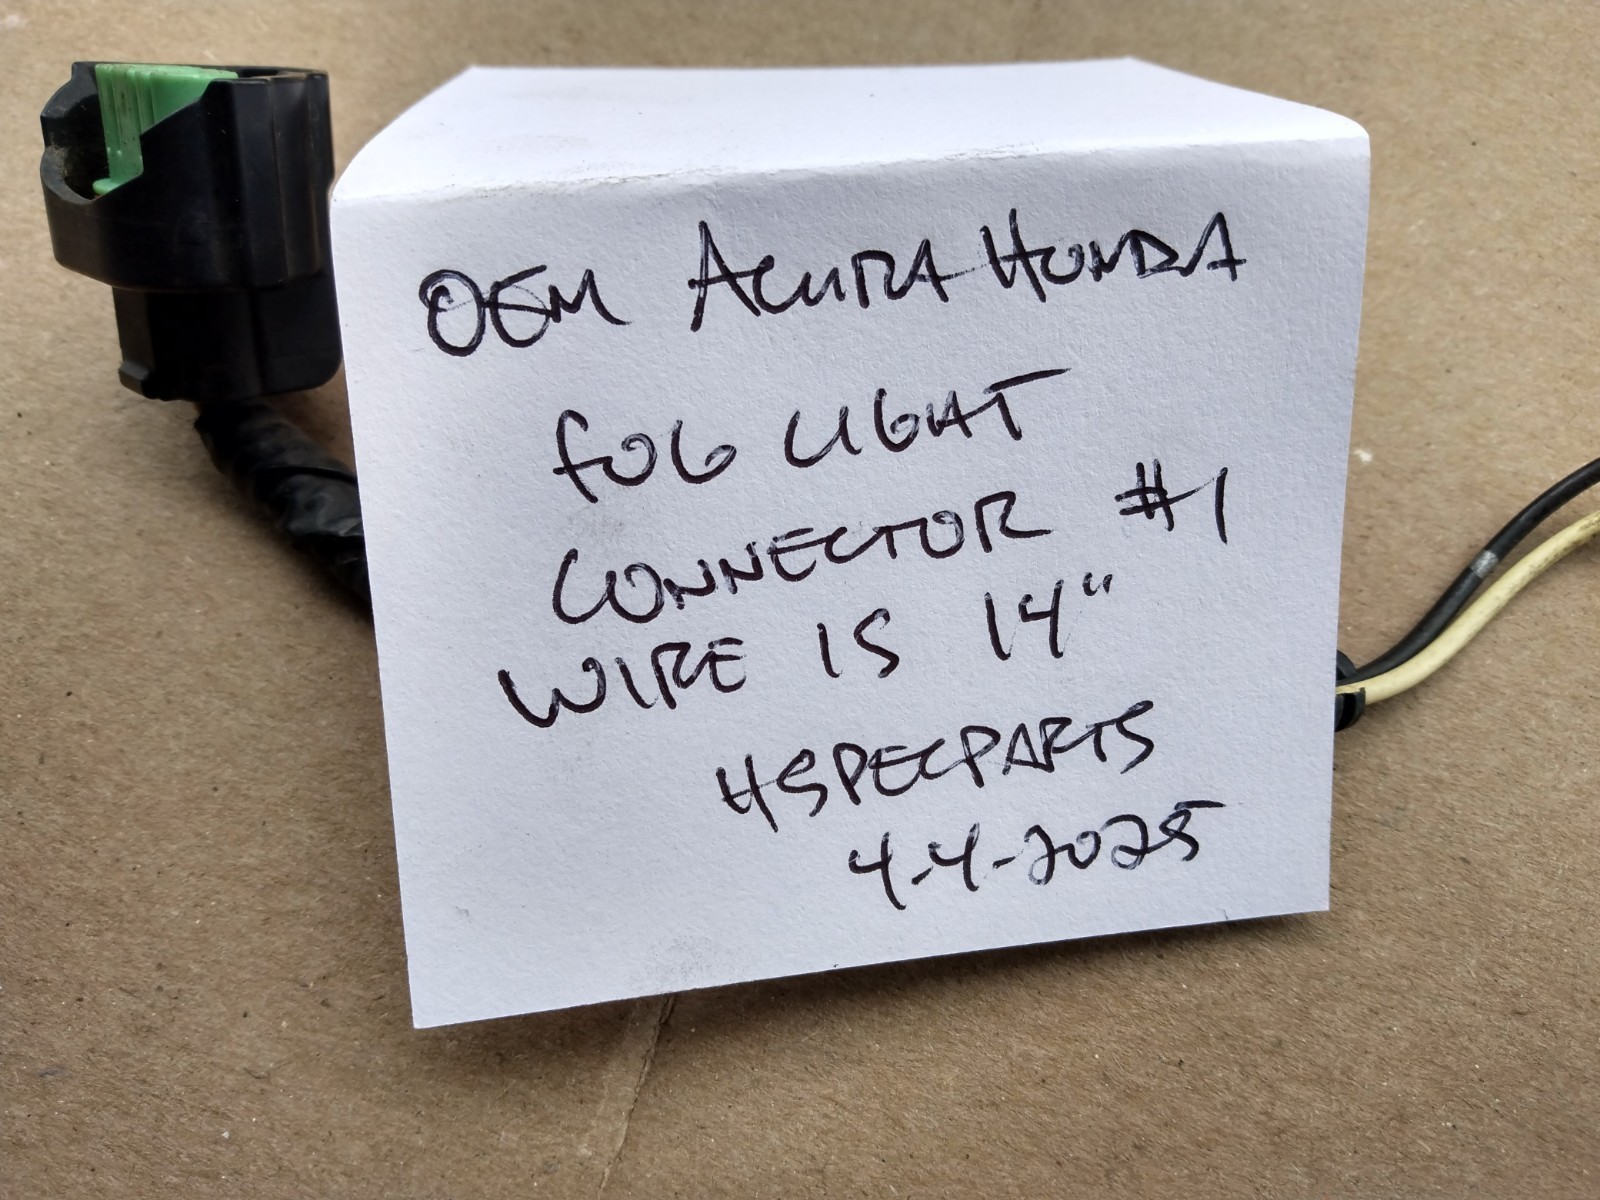 OEM ACURA HONDA
FOG LIGHT
CONNECTOR #1
WIRE IS 14"
HSPECPARTS
4-4-2025